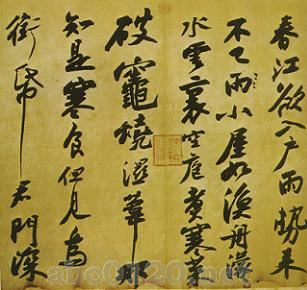 春江欲入戶雨勢來
不已雨小屋如漁舟濛々
水雲裏空庖煮寒菜
破竈燒濕葦那
知是寒食但見烏
銜帋君門深